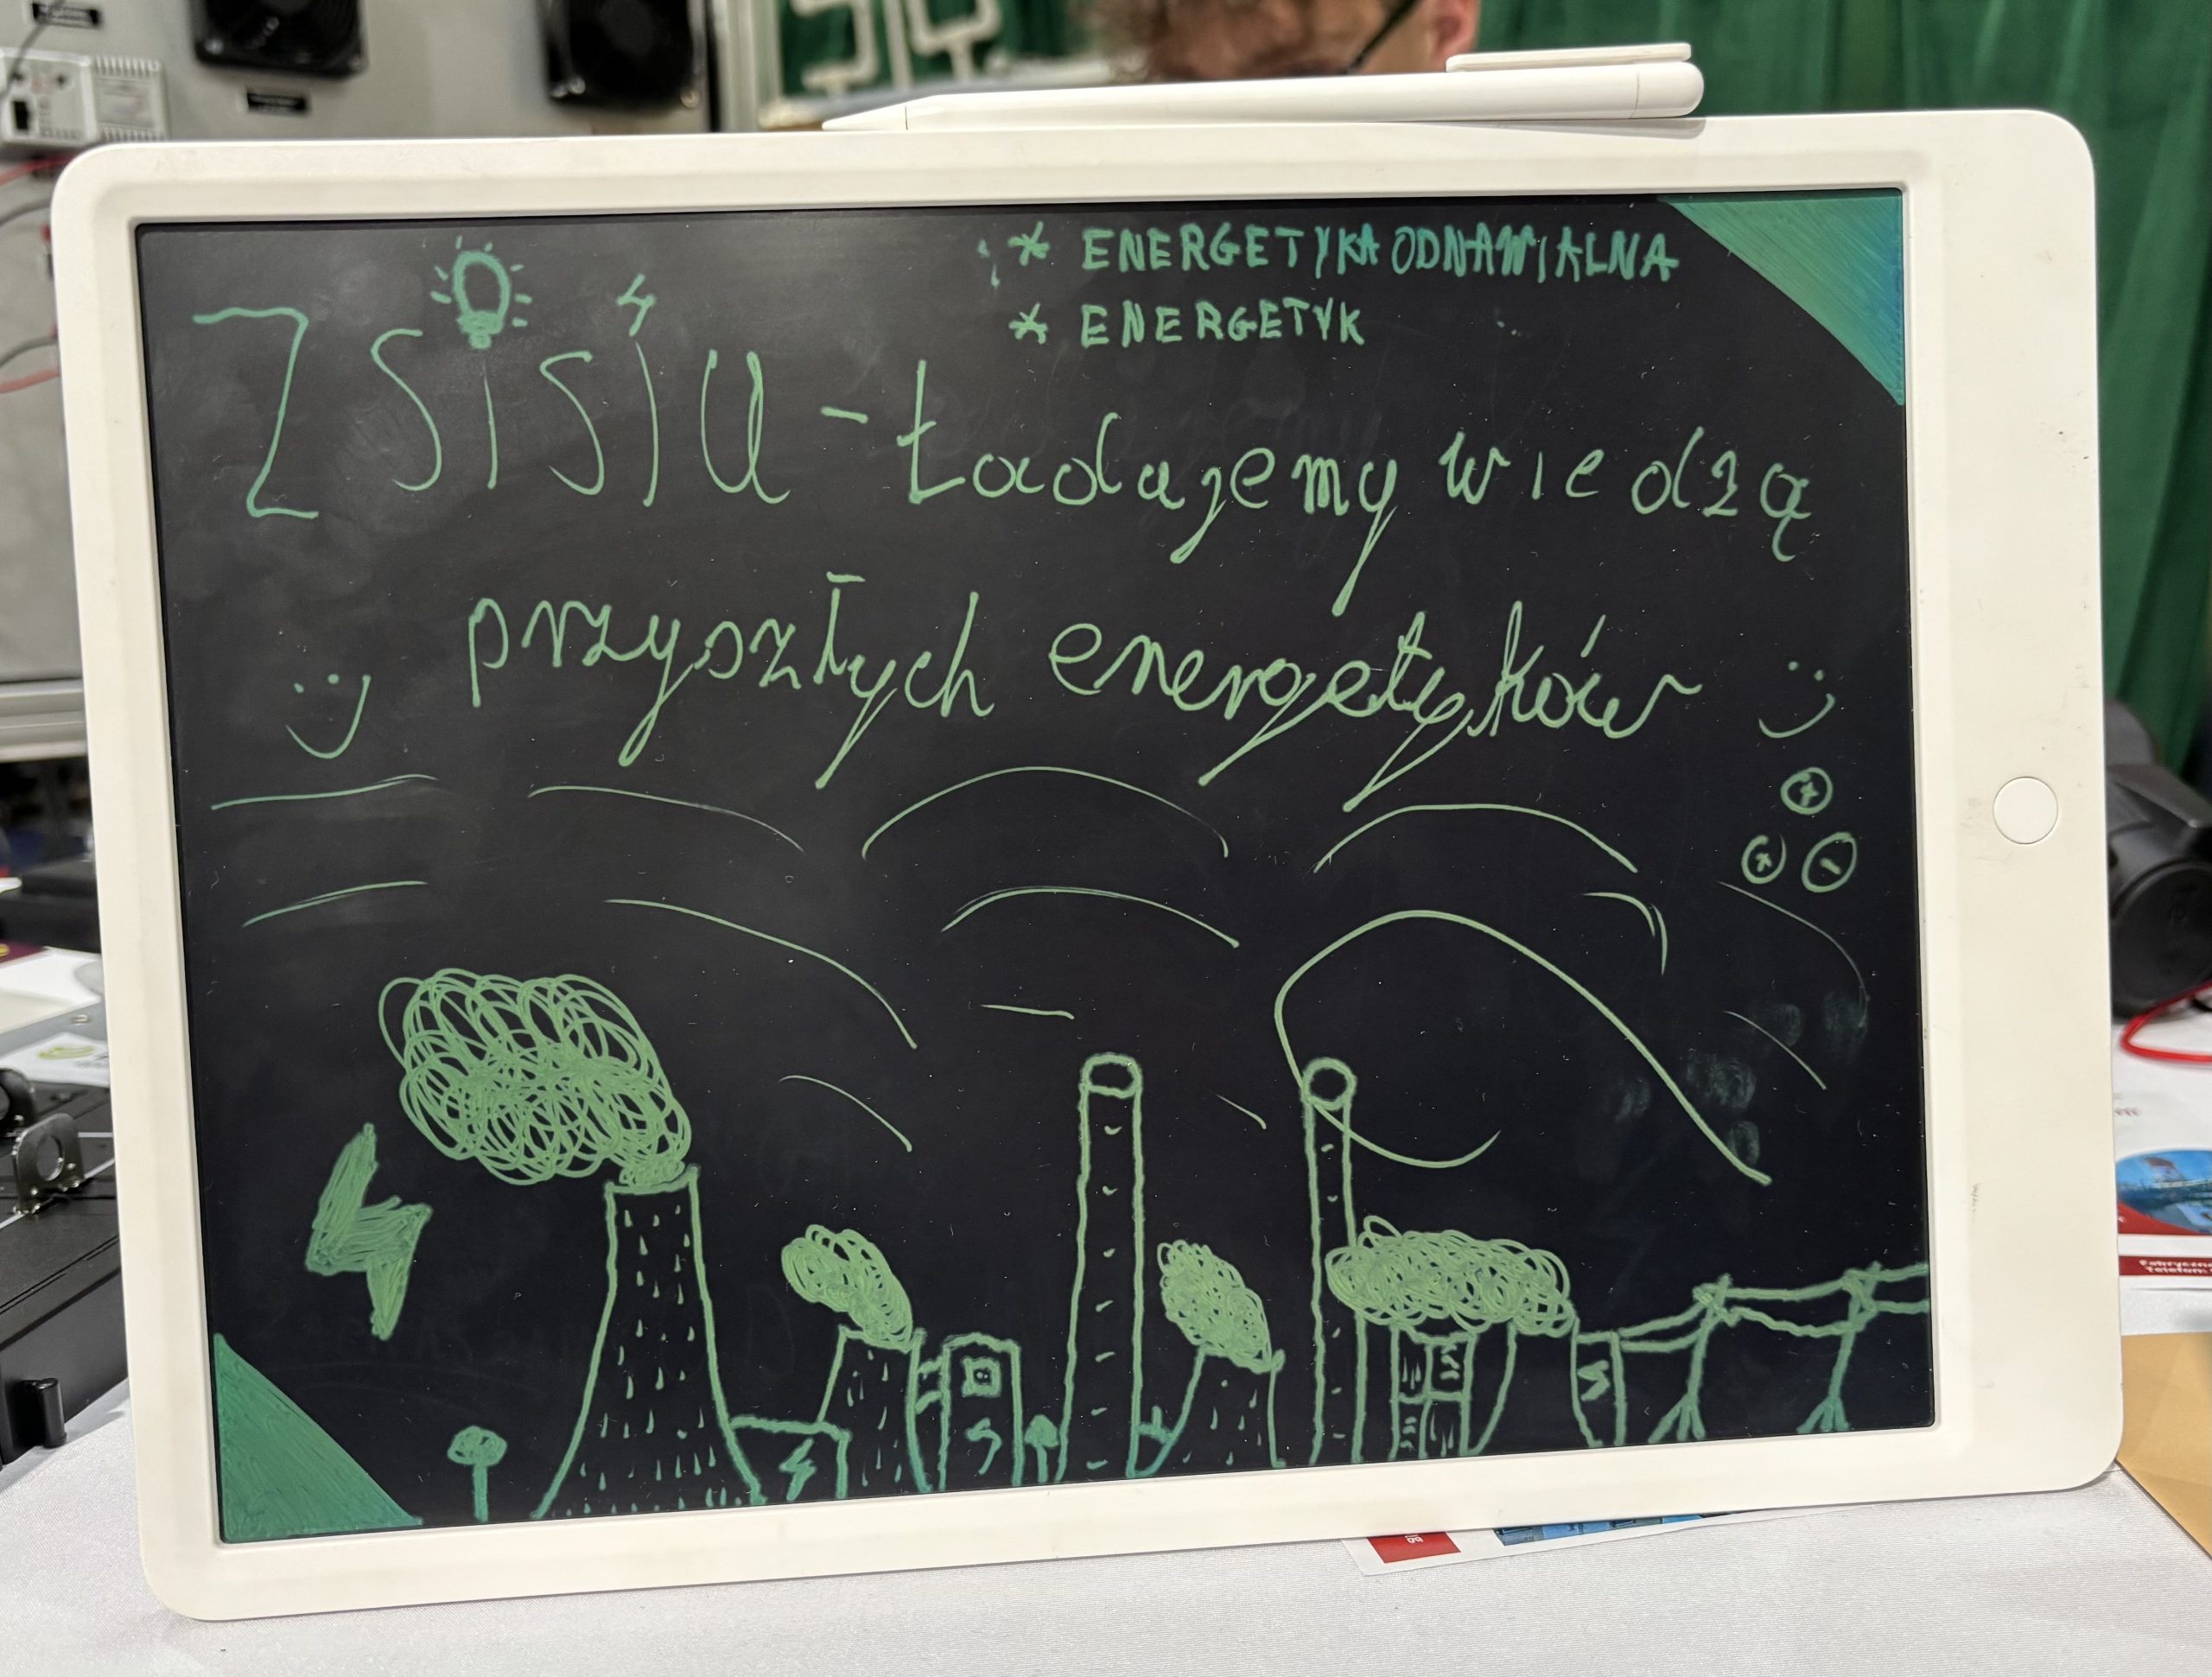 * ENERGETYKA ODNAWIALNA
* ENERGETYK
ZSiSiU - Ładujemy wiedzą
przyszłych energetyków